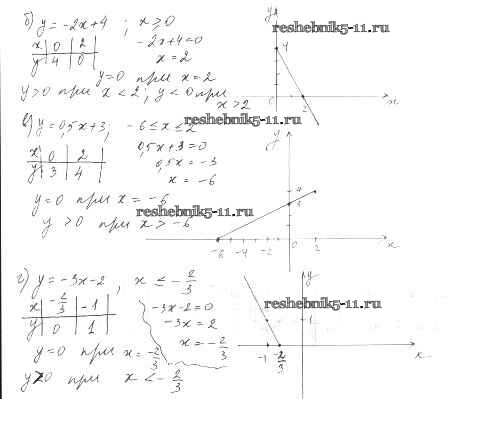 б) y = -2x+4 ; x ≥ 0
x | 0 | 2
y | 4 | 0
-2x+4=0
x = 2
y=0 при x = 2
y>0 при x < 2 ; y < 0 при
x > 2
y
4
0
2
x
reshebnik5-11.ru
в) y = 0,5x+3; -6 ≤ x ≤ 2
reshebnik5-11.ru
x | 0 | 2
y | 3 | 4
0,5x+3=0
0,5x = -3
x = -6
y=0 при x = -6
y > 0 при x > -6
reshebnik5-11.ru
y
4
-6
-4
-2
0
2
x
г) y = -3x-2 , x ≤ -2/3
x | -2/3 | -1
y | 0 | 1
-3x-2=0
-3x = 2
x = -2/3
y=0 при x = -2/3
y>0 при x < -2/3
y
reshebnik5-11.ru
1
-1
-2/3
x